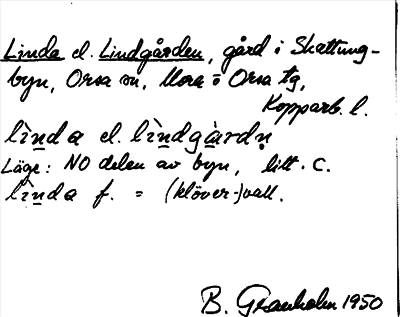 Linda el. Lindgården, gård i Skattung-
byn, Orsa sn, Mora o Orsa tg,
Kopparb. l.
lìnda el. lìndgàrdn
Läge: NO delen av byn, litt. C.
lìnda f. = (klöver-)vall.
B. Granholm 1950